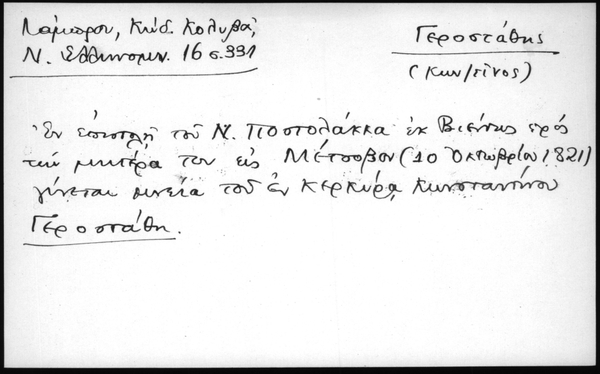 Λάμπρου, Κώδ. Κολυβᾶ,
Ν. Ἑλληνομν. 16 σ. 331
Γεροστάθης
(Κων/τῖνος)
Ἐν ἐπιστολῇ τοῦ Ν. Ποστολάκκα ἐκ Βιέννης πρὸς
τὴν μητέρα του εἰς Μέτσοβον (10 Ὀκτωβρίου 1821)
γίνεται μνεία τοῦ ἐν Κερκύρᾳ Κωνσταντίνου
Γεροστάθη.